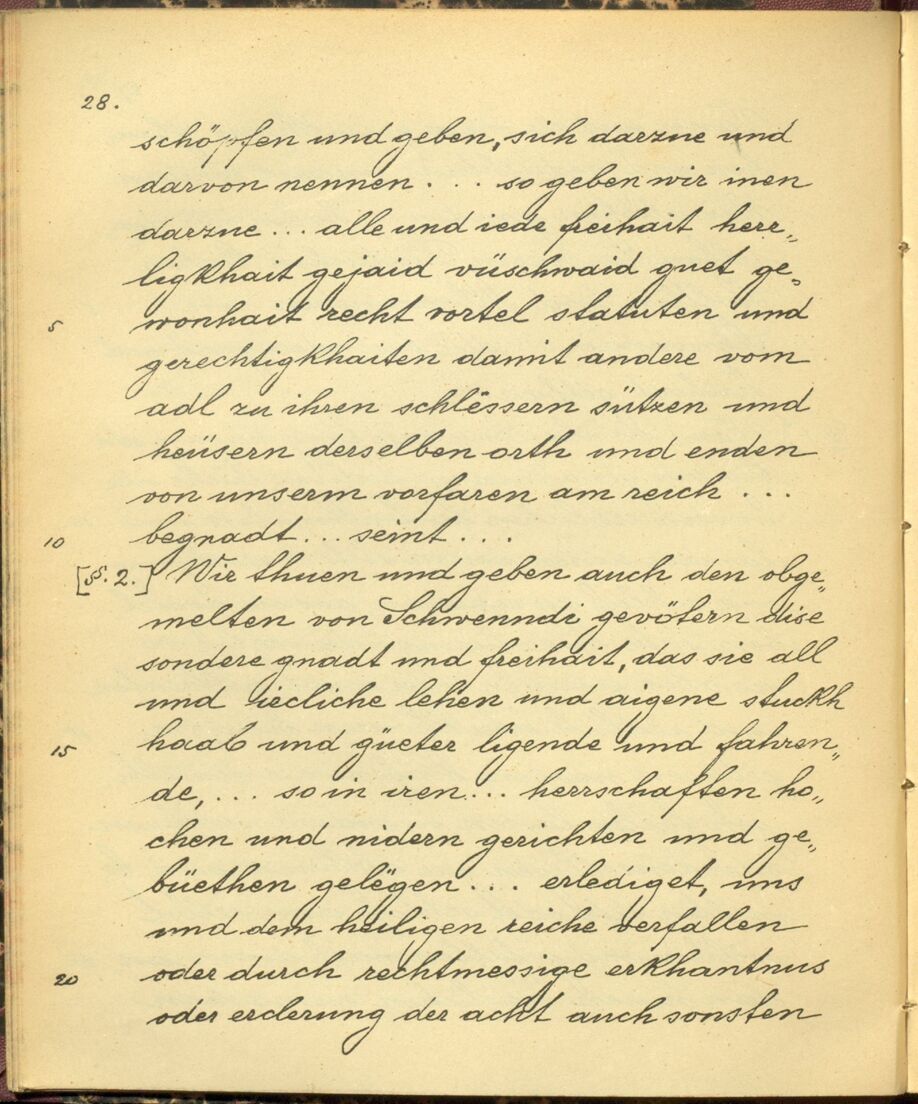 28.
schöpfen und geben, sich darzue und
darvon nennen . . . so geben wir inen
darzue ... alle und iede freihait herr„
ligkhait gejaid vüschwaid guet ge„
5 wonhait recht vortel statuten und
gerechtigkhaiten damit andere vom
adl zu ihren schlëssern sützen und
heüsern derselben orth und enden
von unserm vorfaren am reich ...
10 begnadt ... seint ...
[§. 2.] Wir thuen und geben auch den obge„
melten von Schwenndi gevötern dise
sondere gnadt und freihait, das sie all
und iecliche lehen und aigene stuckh
15 haab und güeter ligende und fahren„
de, ... so in iren ... herrschaften ho„
chen und nidern gerichten und ge„
büethen gelëgen ... erlediget, uns
und dem heiligen reiche verfallen
20 oder durch rechtmessige erkhantnus
oder erclerung der acht auch sonsten